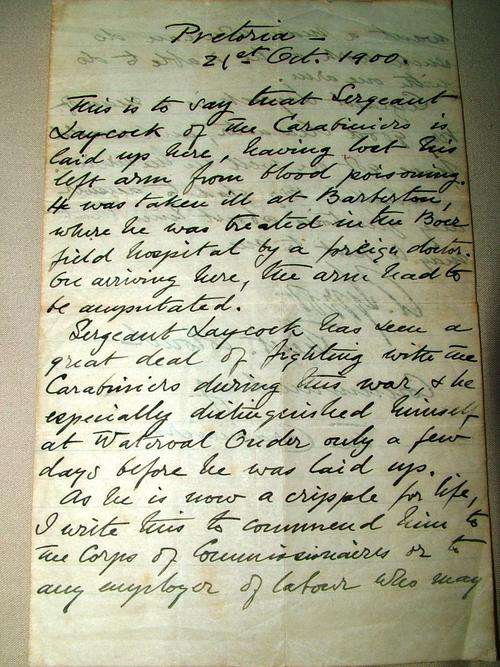 Pretoria –
21st Oct. 1900.
This is to say that Sergeant
Laycock of the Carabiniers is
laid up here, having lost his
left arm from blood poisoning.
He was taken ill at Barberton,
where he was treated in the Boer
field hospital by a foreign doctor.
On arriving here, the arm had to
be amputated.
Sergeant Laycock has seen a
great deal of fighting with the
Carabiniers during this war, & he
especially distinguished himself
at Waterval Onder only a few
days before he was laid up.
As he is now a cripple for life,
I write this to commend him to
the Corps of Commissionaires or to
any employer of labour who may